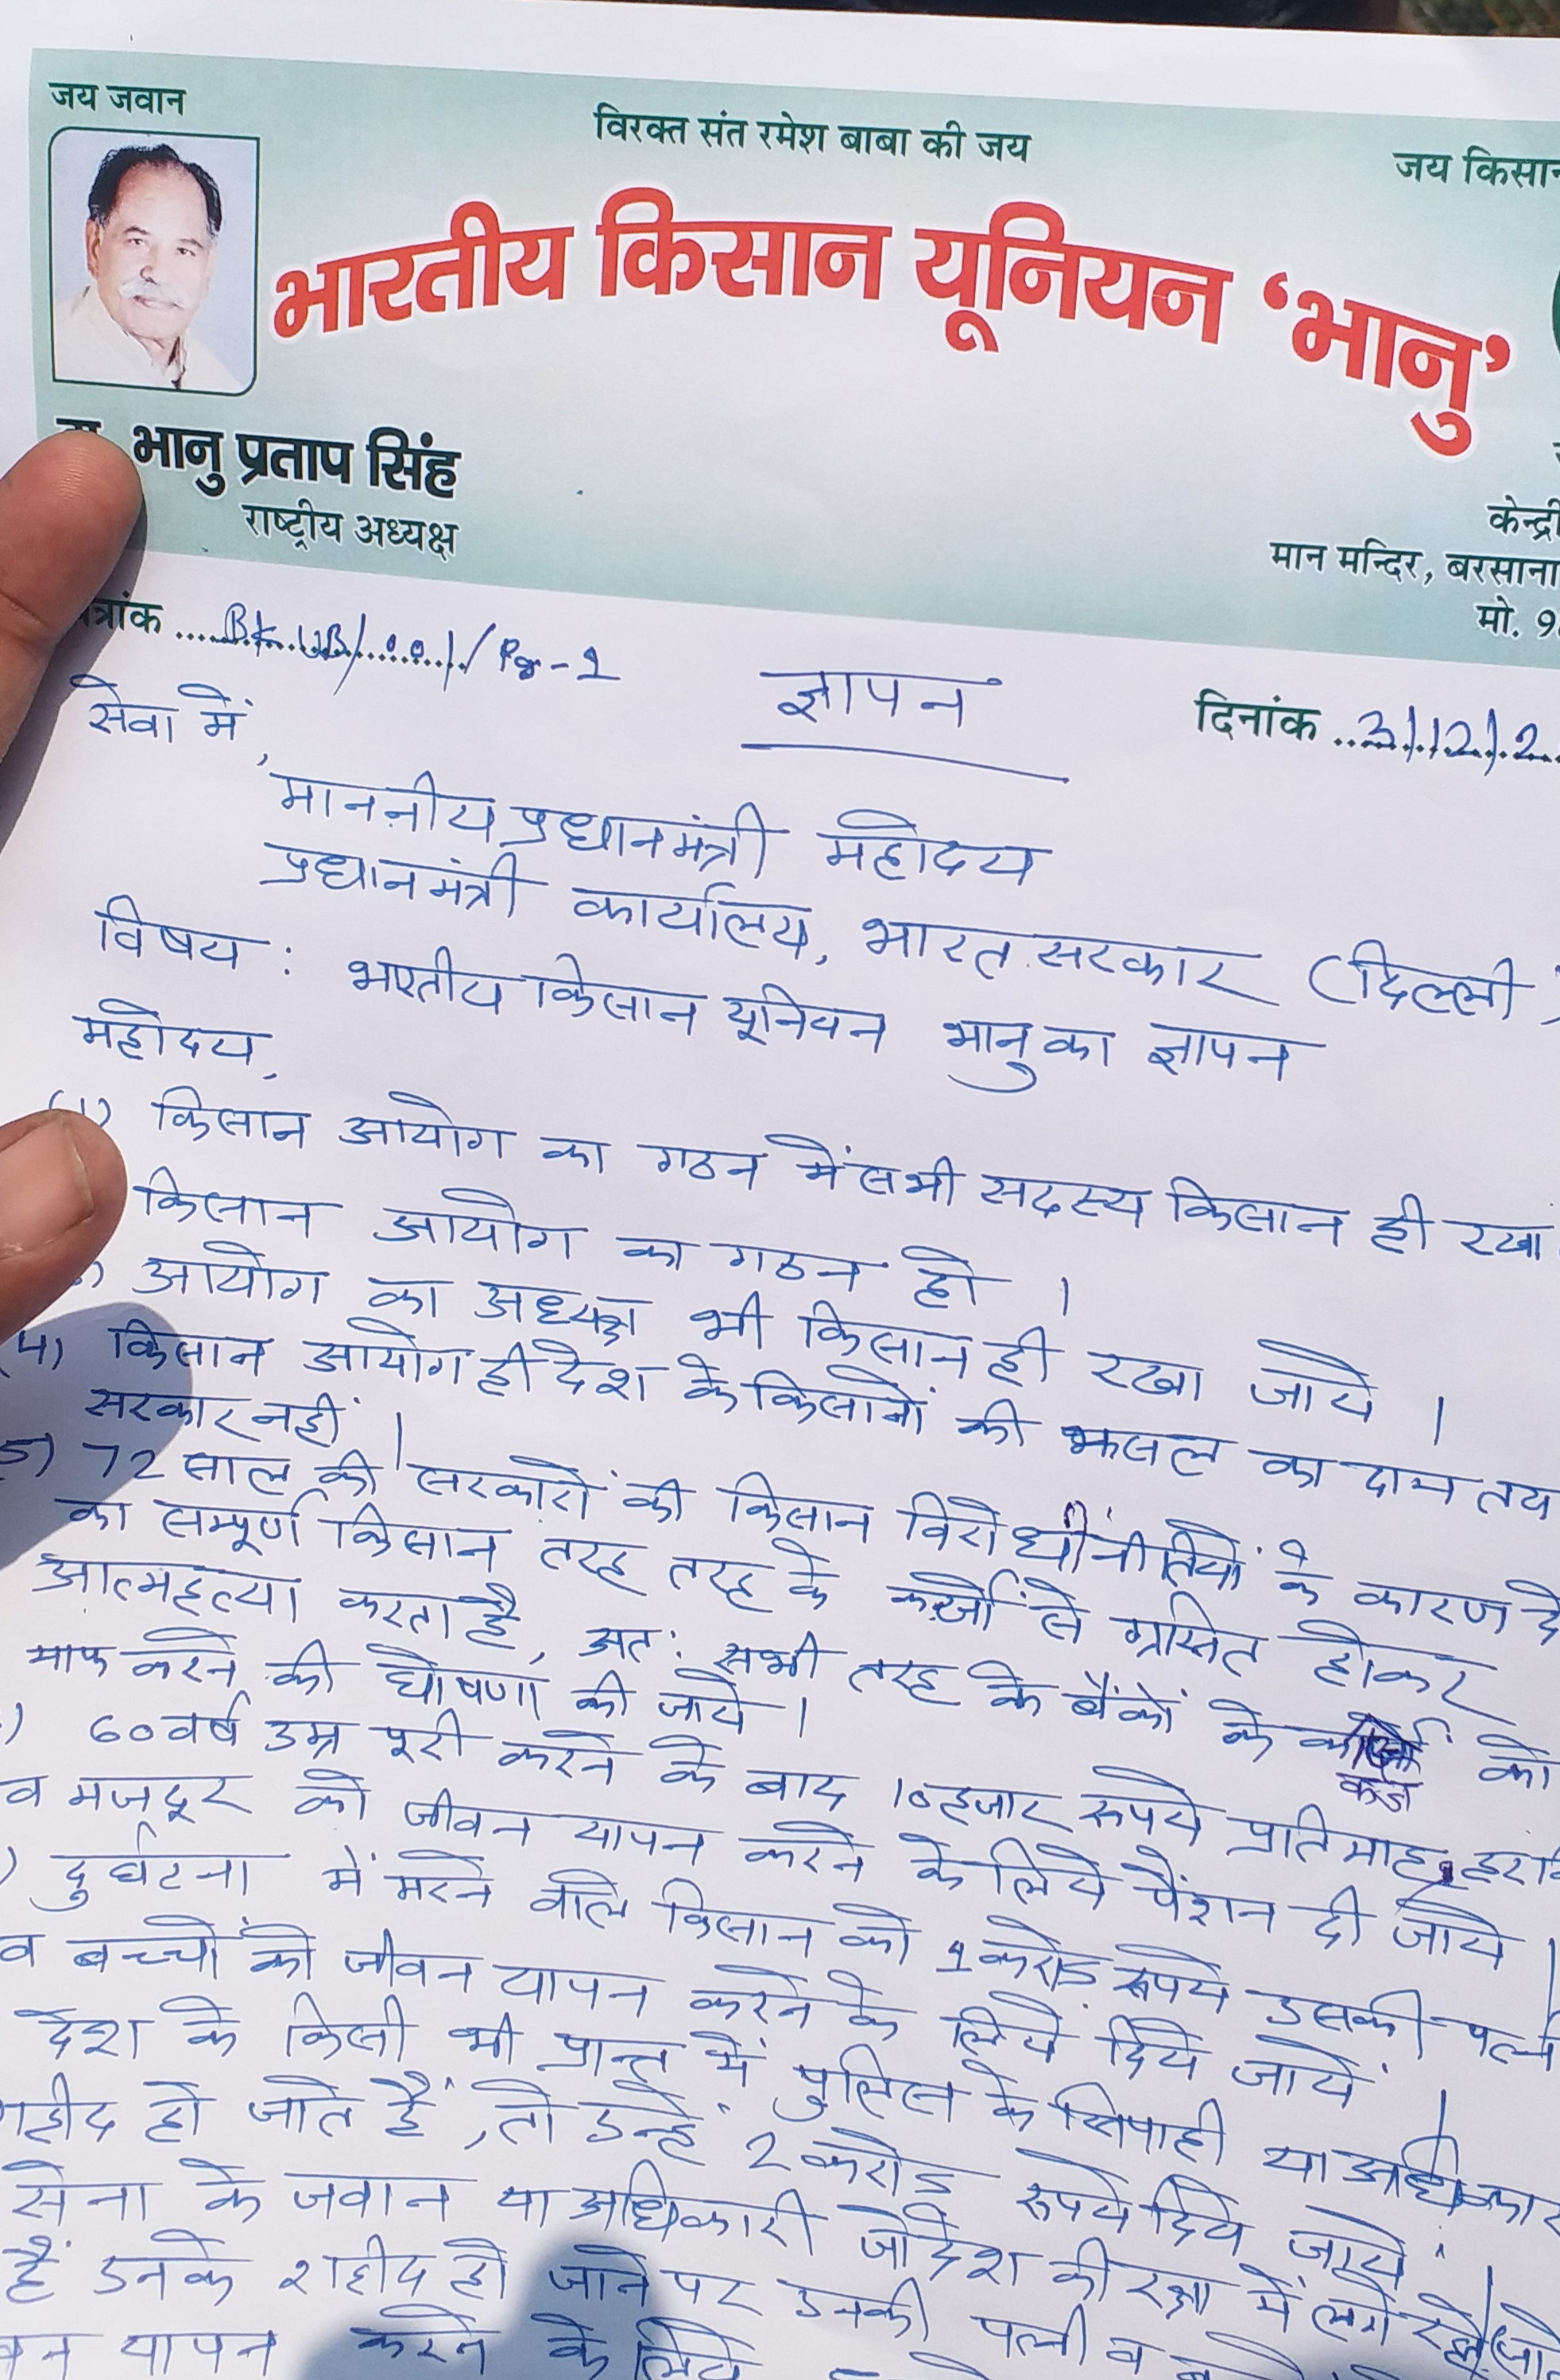 जय जवान
विरक्त संत रमेश बाबा की जय
जय किसान
भारतीय किसान यूनियन ‘भानु’
भानु प्रताप सिंह
राष्ट्रीय अध्यक्ष
केन्द्री
मान मन्दिर, बरसाना
मो. 9
त्रांक
ज्ञापन
दिनांक 3/12/2
सेवा में,
माननीय प्रधानमंत्री महोदय
प्रधानमंत्री कार्यालय, भारत सरकार (दिल्ली)
विषय : भारतीय किसान यूनियन भानु का ज्ञापन
महोदय,
(1) किसान आयोग का गठन में सभी सदस्य किसान ही रखा
किसान आयोग का गठन हो ।
आयोग का अध्यक्ष भी किसान ही रखा जाये ।
(4) किसान आयोग ही देश के किसानों की फसल का दाम तय
सरकार नहीं ।
5) 72 साल की सरकारों की किसान विरोधी नीतियों के कारण दे
का सम्पूर्ण किसान तरह तरह के कर्जों से ग्रसित होकर
आत्महत्या करता है, अतः सभी तरह के बैंकों के कर्ज को
माफ करने की घोषणा की जाये ।
) 60 वर्ष उम्र पूरी करने के बाद 10 हजार रूपये प्रतिमाह
व मजदूर को जीवन यापन करने के लिये पेंशन दी जाये ।
) दुर्घटना में मरने वाले किसान को 1 करोड़ रूपये उसकी पत्नी
व बच्चों को जीवन यापन करने के लिये दिये जायें ।
देश के किसी भी प्रान्त में पुलिस के सिपाही या अधिकार
हीद हो जाते हैं, तो उन्हें 2 करोड़ रूपये दिये जायें ।
सेना के जवान या अधिकारी जो देश की रक्षा में लगे
हैं उनके शहीद हो जाने पर उनकी पत्नी व
यापन करने के लिये